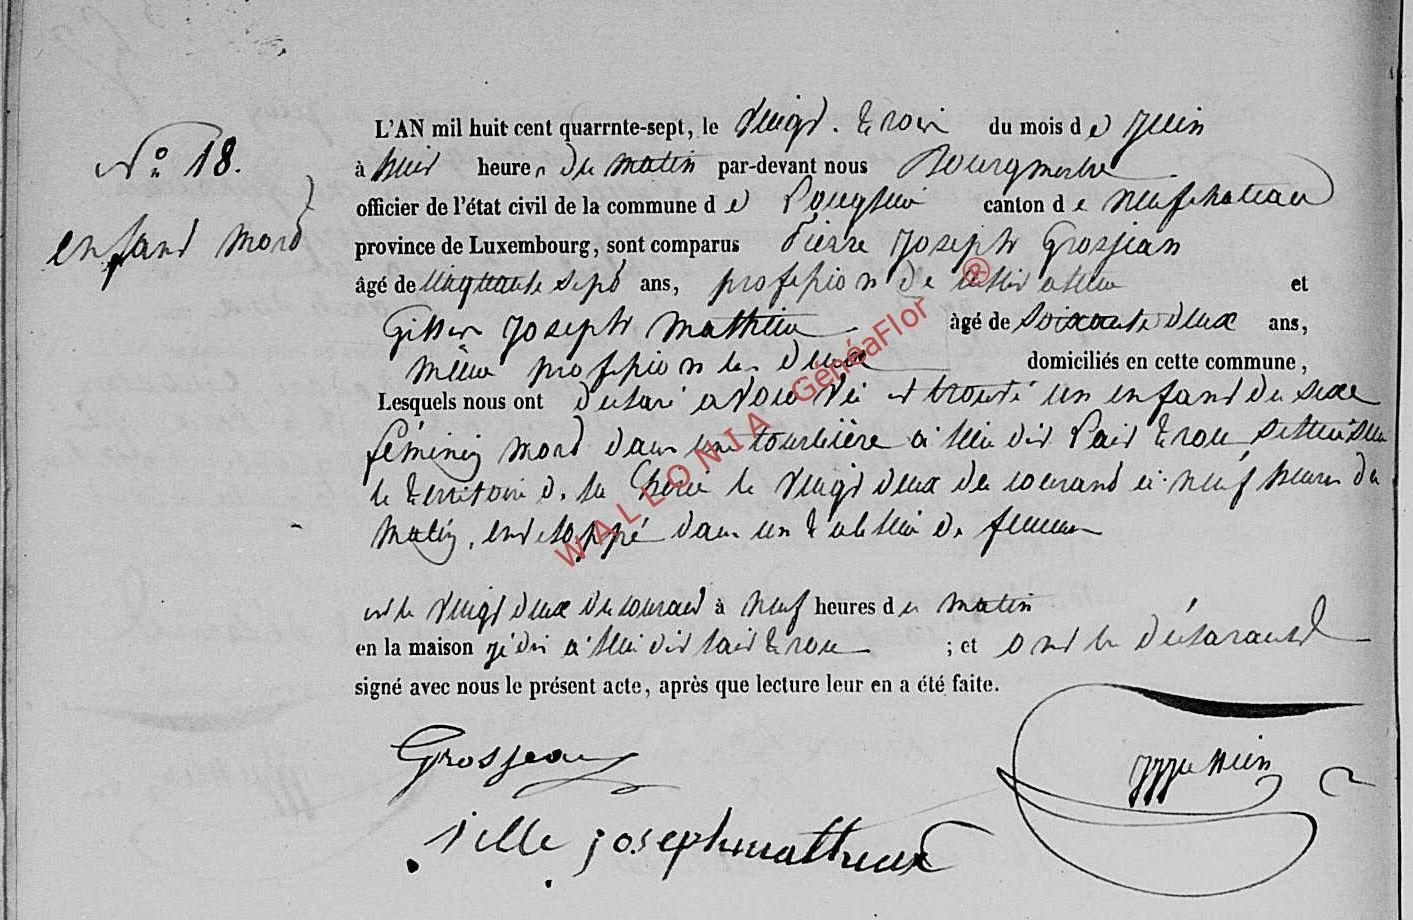 N° 18.
enfand mord
L'AN mil huit cent quarrnte-sept, le Vingt. trois du mois d e Juin
à huit heure s du matin par-devant nous Bourgmestre
officier de l'état civil de la commune d e canton d e neufchateau
province de Luxembourg, sont comparus Pierre Joseph Grosjean
âgé de cinquante sept ans, profession de cultivateur et
Joseph Mathieu àgé de soixante deux ans,
même profession les deux domiciliés en cette commune,
Lesquels nous ont déclaré avoir vü et trouvé un enfand du sexe
féminin mord dans une tourbière a lieu dit
le territoire de le vingt deux du courand à neuf heures du
matin, enveloppé dans un tablier de femme
et le vingt deux du courand à neuf heures d u matin
en la maison a lieu dit ; et ond les déclarands
signé avec nous le présent acte, après que lecture leur en a été faite.
Grosjean
josephmathieux
WALLONIA GénéaFlor ®